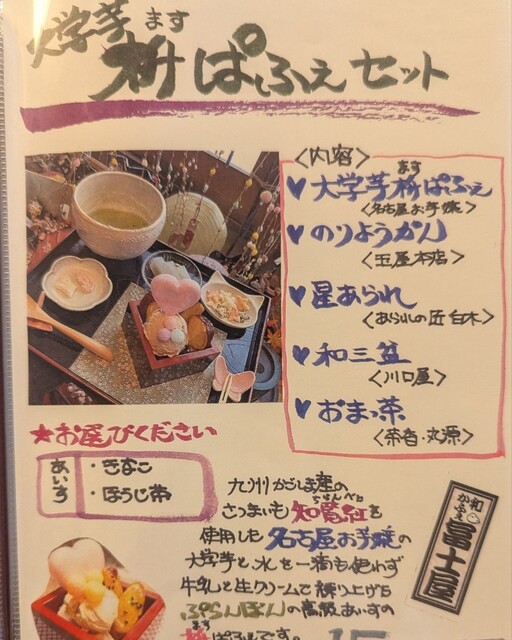 大学芋 ます
枡ぱふぇセット
<内容>
ます
♥大学芋枡ぱふぇ
<名古屋お芋燒>
♥のりようかん
<玉屋本店>
♥星あられ
<あられの匠 白木>
♥和三盆
<川口屋>
♥おまっ茶
<茶香・丸源>
★お選びください
あいす
・きなこ
・ほうじ茶
九州かごしま産の
ちらんべに
さつまいも知覧紅を
使用した名古屋お芋燒の
大学芋と、水を一滴も使わず
牛乳と生クリームで練り上げた
ぷらんぼんの高級あいすの
ます
枡ぱふぇです。
和
かふぇ
冨士屋